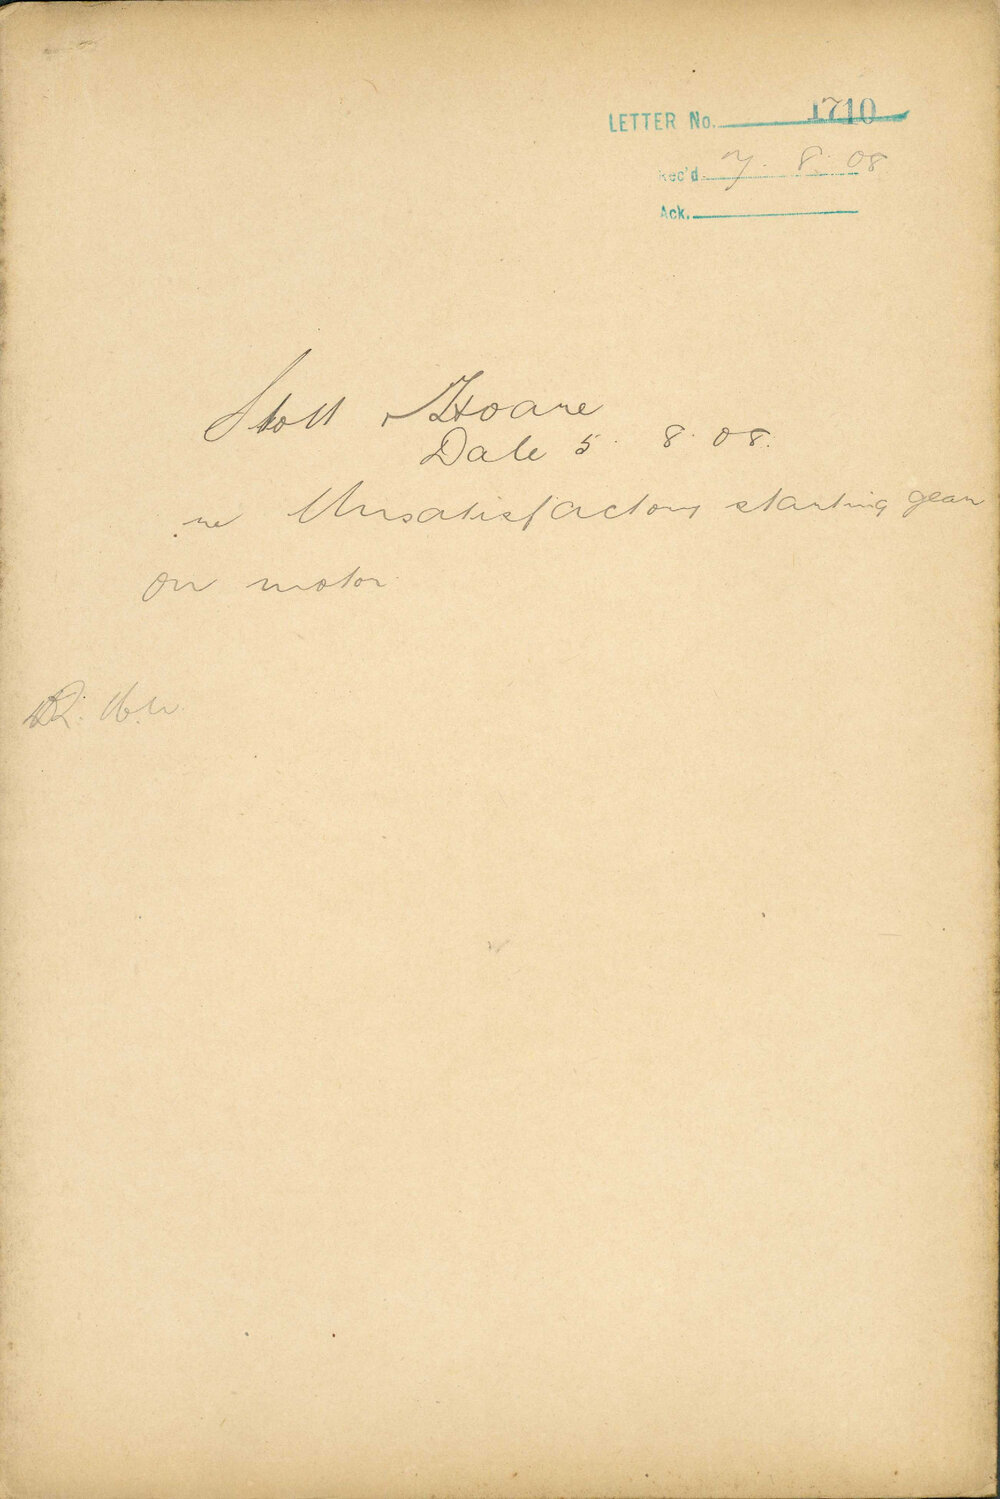 LETTER No. 1710
Rec'd 7. 8. 08
Ack.
Stott & Hoare
Date 5. 8. 08.
re Unsatisfactory starting gear
on motor